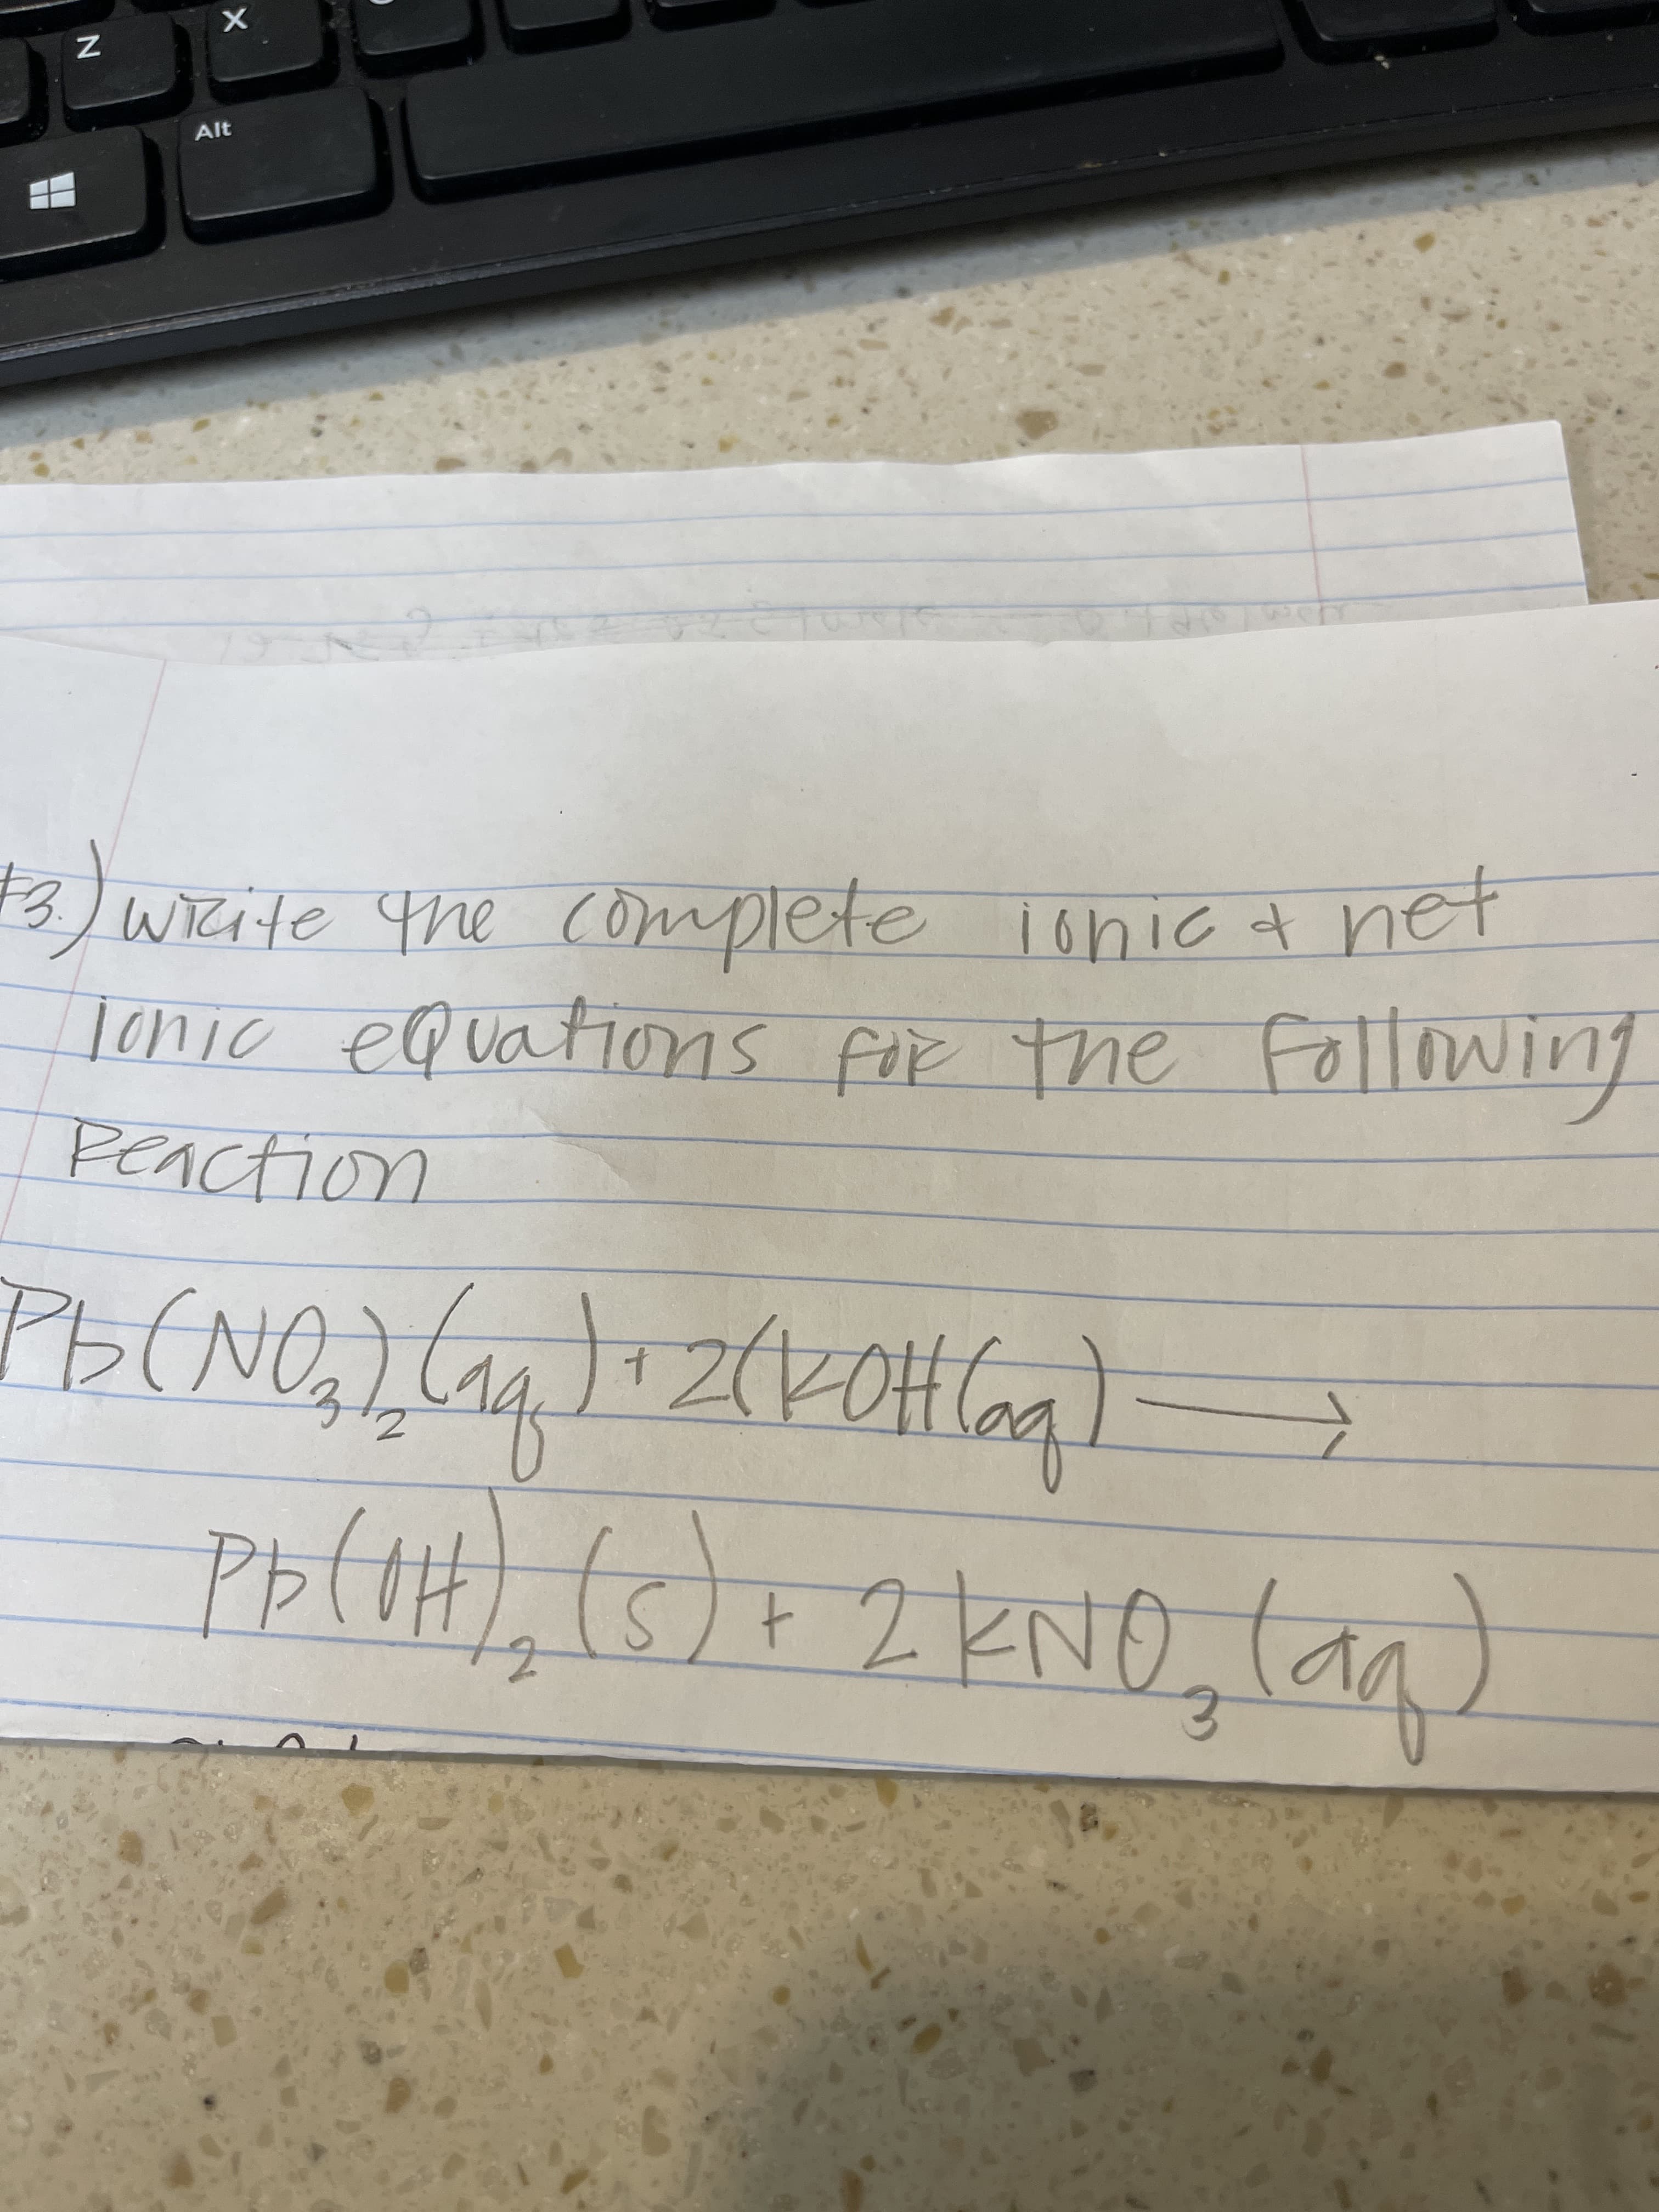 Z
X
Alt
#3.) write the complete ionic & net
ionic equations for the following
Reaction
Pb(NO₃)₂(aq) + 2(KOH(aq) ⟶
Pb(OH)₂(s) + 2KNO₃(aq)